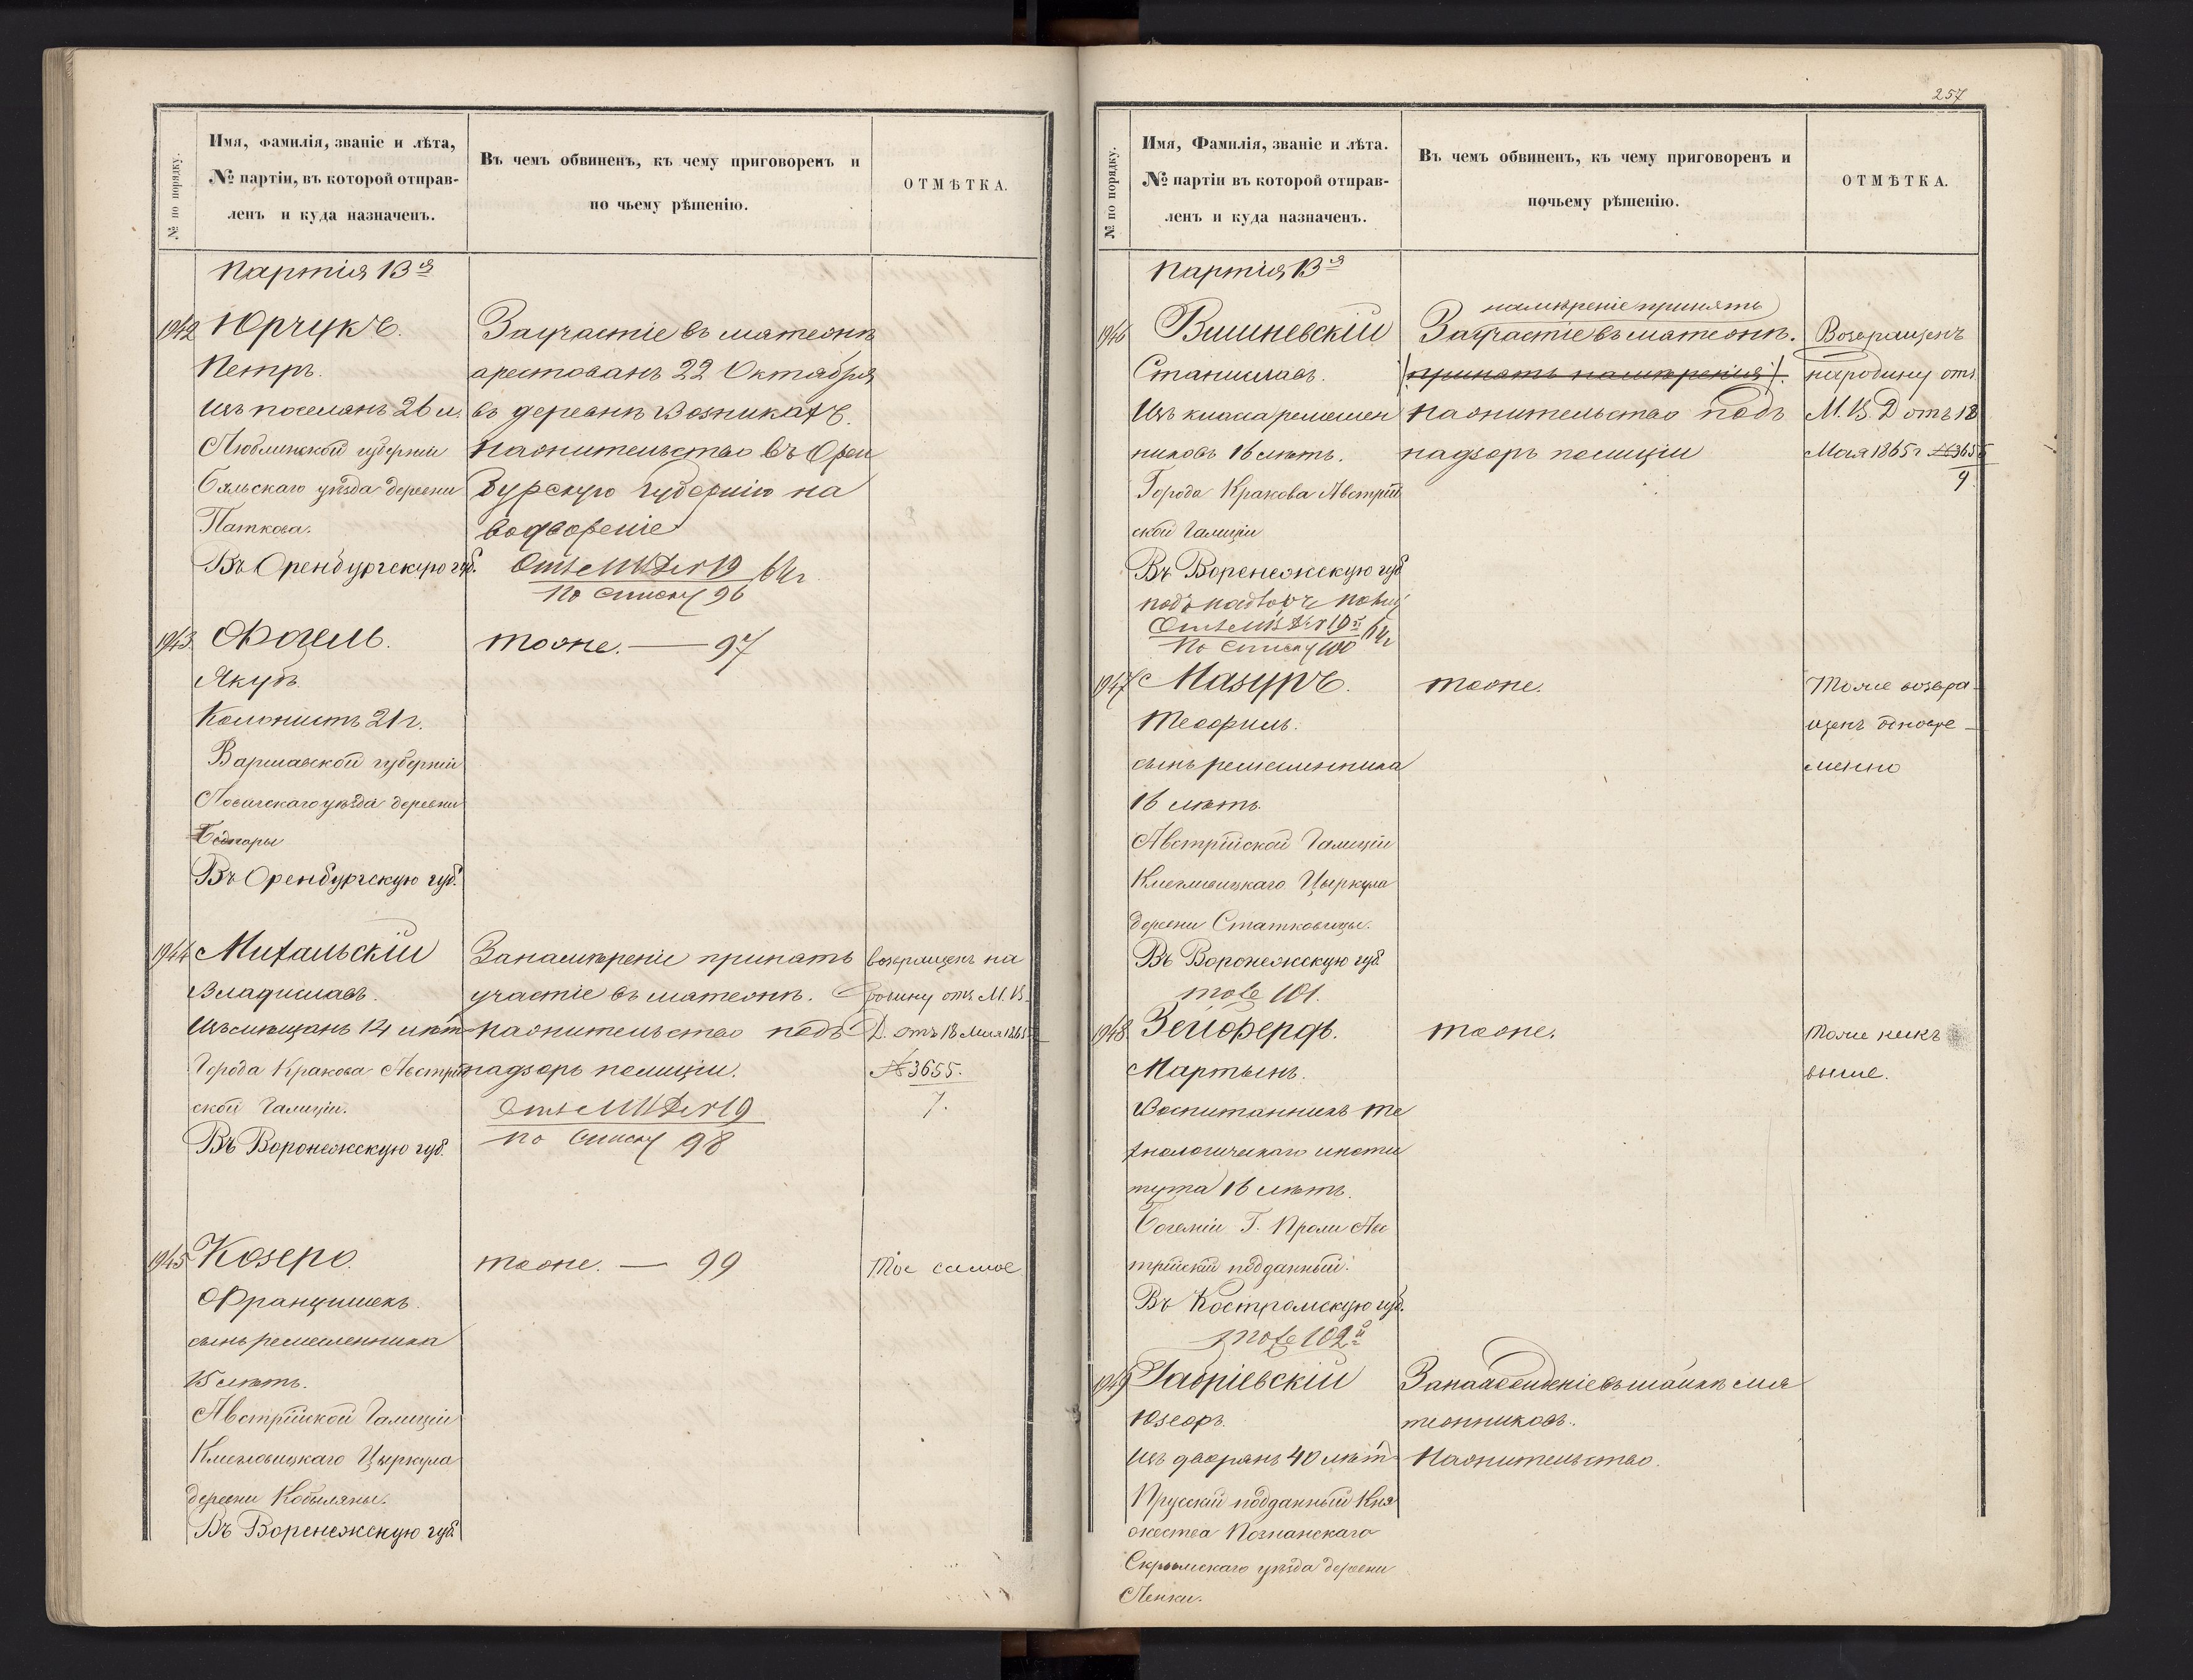 № по порядку.
Имя, фамилія, званіе и лѣта,
№ партіи, въ которой отправ-
ленъ и куда назначенъ.
Въ чемъ обвиненъ, къ чему приговоренъ и
по чьему рѣшенію.
ОТМѢТКА.
Партія 13я
1942 Юрчукъ.
Петръ.
Изъ поселянъ 26 л.
Люблинской губерніи
Бяльскаго уѣзда деревни
Паткова.
Въ Оренбургскую губ.
За участіе въ мятежѣ
арестованъ 22 Октября
въ деревнѣ Возникахъ.
На жительство въ Орен
бургскую губернію на
водвореніе
От. М.В.Д. № 19 64 г
По списку 96
1943 Фогель.
Якубъ
Колонистъ 21 г.
Варшавской губерніи
уѣзда деревни
Въ Оренбургскую губ.
тоже. — 97
1944 Михальскій
Владиславъ.
Изъ мѣщанъ 14 лѣтъ
Города Кракова Австрій
ской Галиціи.
Въ Воронежскую губ.
За намѣреніе принять
участіе въ мятежѣ.
На жительство подъ
надзоръ полиціи.
От. М.В.Д. № 19
По списку 98
возвращенъ на
родину отъ М. В.
Д. отъ 18 Мая 1865
№ 3655.
7.
1945 Козеро.
Францишекъ.
сынъ ремесленника
15 лѣтъ.
Австрійской Галиціи
Цыркула
деревни Кобыляны.
Въ Воронежскую губ.
тоже. — 99
Тое самое
257
№ по порядку.
Имя, Фамилія, званіе и лѣта.
№ партіи въ которой отправ-
ленъ и куда назначенъ.
Въ чемъ обвиненъ, къ чему приговоренъ и
почьему рѣшенію.
ОТМѢТКА.
Партія 13я
1946 Вишневскій
Станиславъ.
Изъ класа ремеслен
никовъ 16 лѣтъ.
Города Кракова Австрій
ской Галиціи
Въ Воронежскую губ
подъ надзоръ полиц
От. М.В.Д. № 19й 64 г
По списку 100
намѣреніе принять
За участіе въ мятежѣ.
(принять намѣренія).
На жительство подъ
надзоръ полиціи
Возвращенъ
народину отъ
М. В. Д отъ 18
Мая 1865 г № 3655
9
1947 Мазуръ.
Теофиль.
сынъ ремесленника
16 лѣтъ.
Австрійской Галиціи
Цыркула
деревни Статковицы.
Въ Воронежскую губ.
тоже 101.
тоже.
Тоже возвра-
щенъ одновре-
менно
1948 Зейфердъ.
Мартынъ.
Воспитанникъ те
хнологическаго инсти
тута 16 лѣтъ.
Богеміи Г. Проли Авс
трійскій подданный.
Въ Костромскую губ.
тоже 102й
тоже.
Тоже какъ
выше.
1949 Габріевскій
Юзефъ.
Изъ дворянъ 40 лѣтъ
Прусскій подданный Кня
жества Познанскаго
уѣзда деревни
Ленки.
За нахожденіе въ шайкѣ мя
тежниковъ.
На жительство.